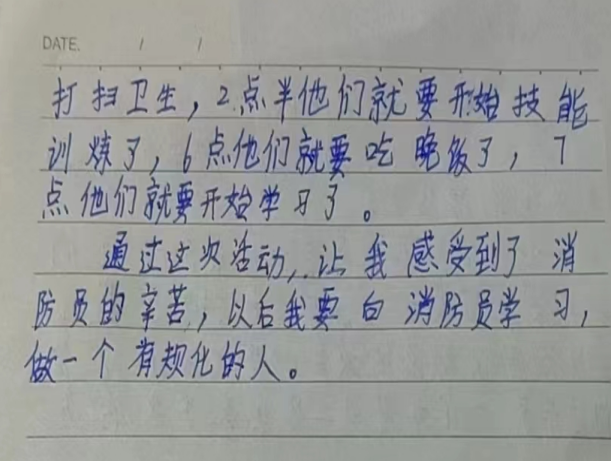 DATE. / /
打扫卫生，2点半他们就要开始技能
训炼了，6点他们就要吃晚饭了，7
点他们就要开始学习了。
通过这次活动，让我感受到了消
防员的辛苦，以后我要白消防员学习，
做一个有规化的人。